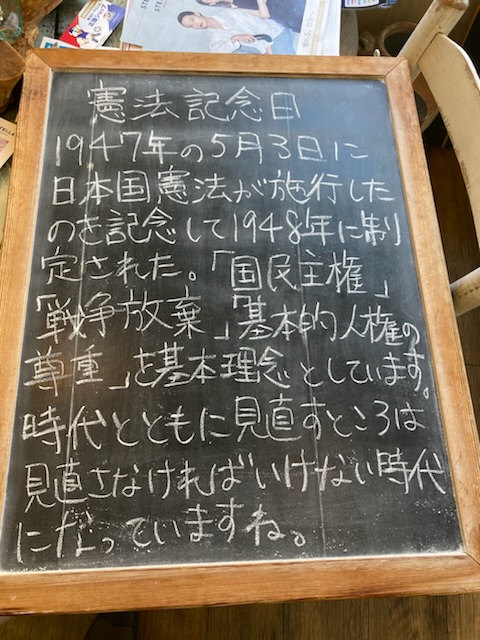 憲法記念日
1947年の5月3日に
日本国憲法が施行した
のを記念して1948年に制
定された。「国民主権」
「戦争放棄」「基本的人権の
尊重」を基本理念としています。
時代とともに見直すところは
見直さなければいけない時代
になっていますね。